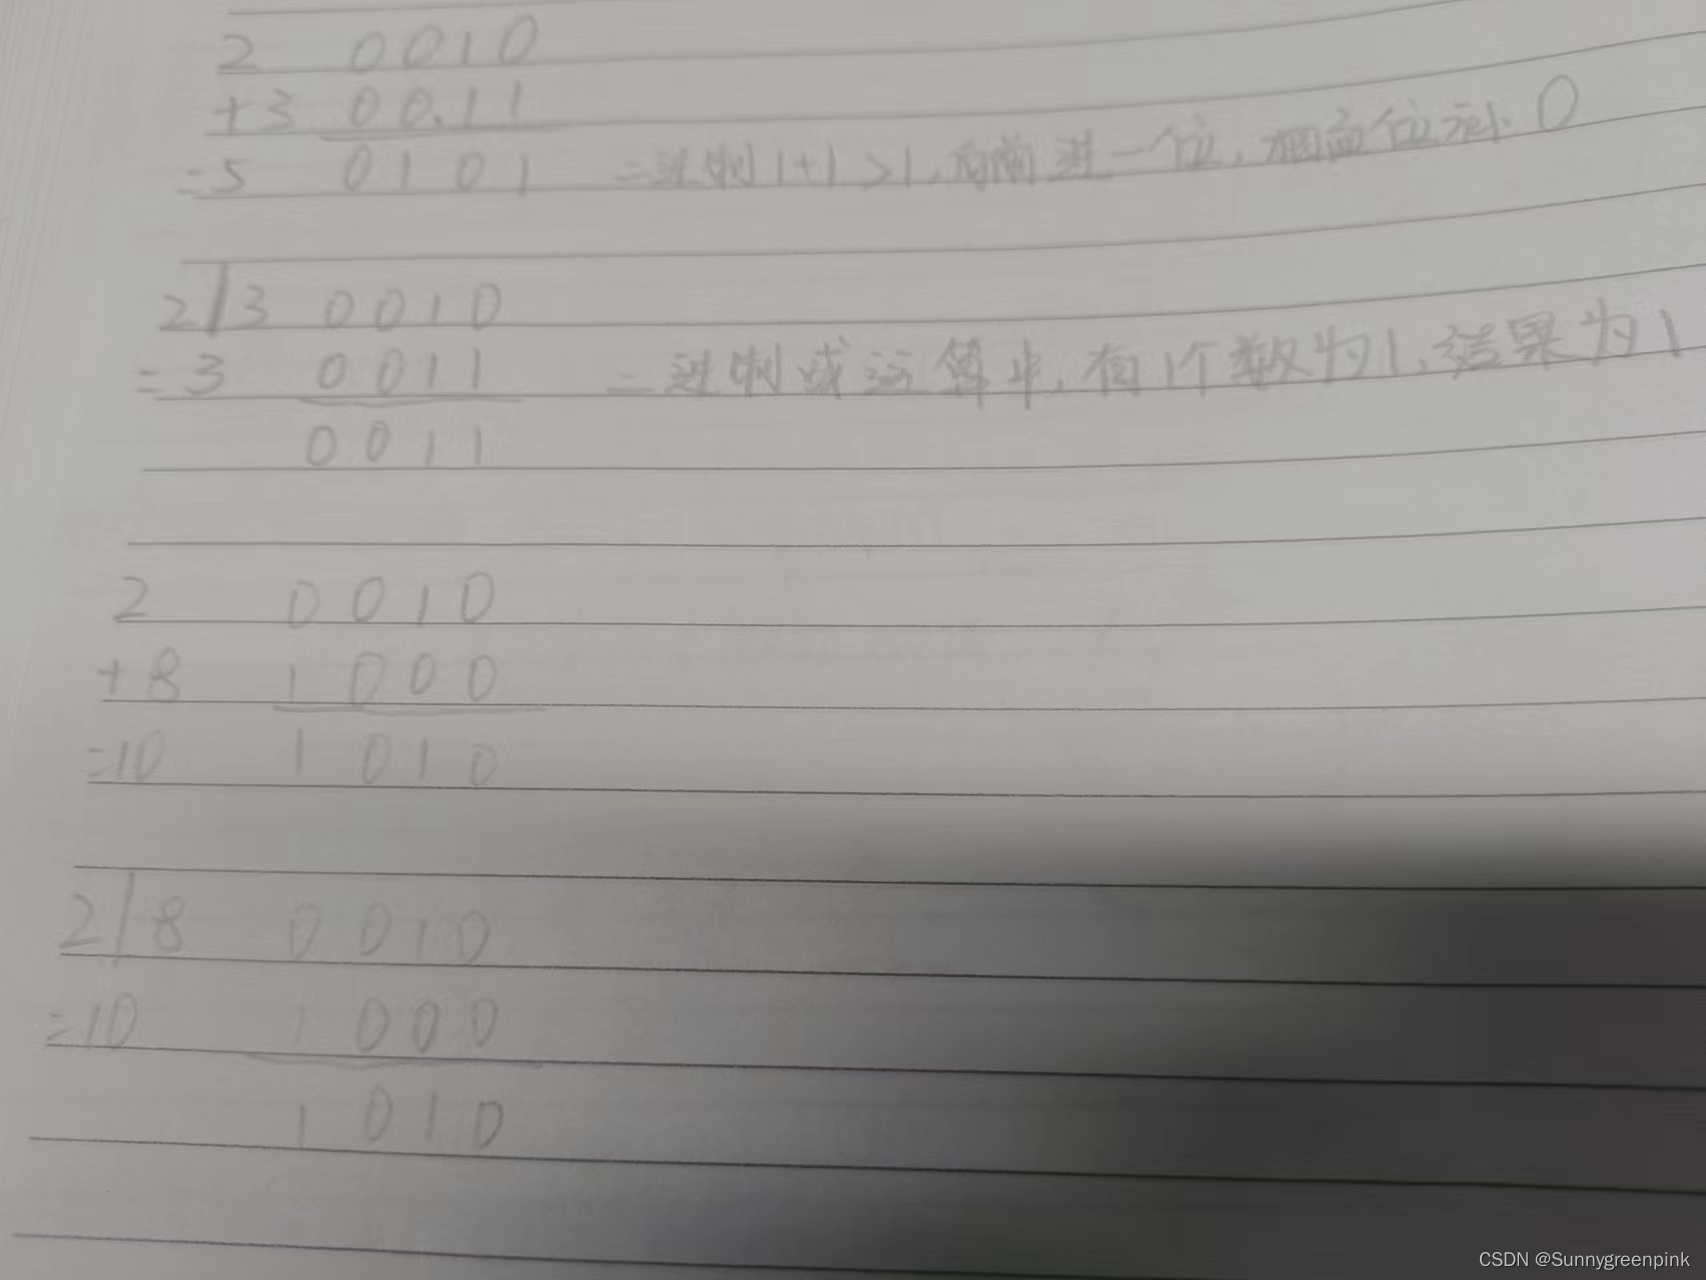 2 0010
+3 0011
=5 0101 二进制1+1>1,向前进一位,补0
2|3 0010
=3 0011 二进制或运算中,有1个数为1,结果为1
0011
2 0010
+8 1000
=10 1010
2|8 0010
=10 1000
1010
CSDN @Sunnygreenpink